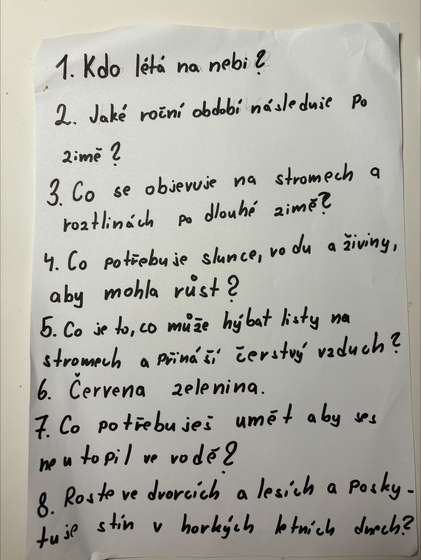 1. Kdo létá na nebi?
2. Jaké roční období následuje po
zimě?
3. Co se objevuje na stromech a
roztlinách po dlouhé zimě?
4. Co potřebuje slunce, vodu a živiny,
aby mohla růst?
5. Co je to, co může hýbat listy na
stromech a přináší čerstvý vzduch?
6. Červena zelenina.
7. Co potřebuješ umět aby ses
neutopil ve vodě?
8. Roste ve dvorcích a lesích a posky-
tuje stín v horkých letních dnech?